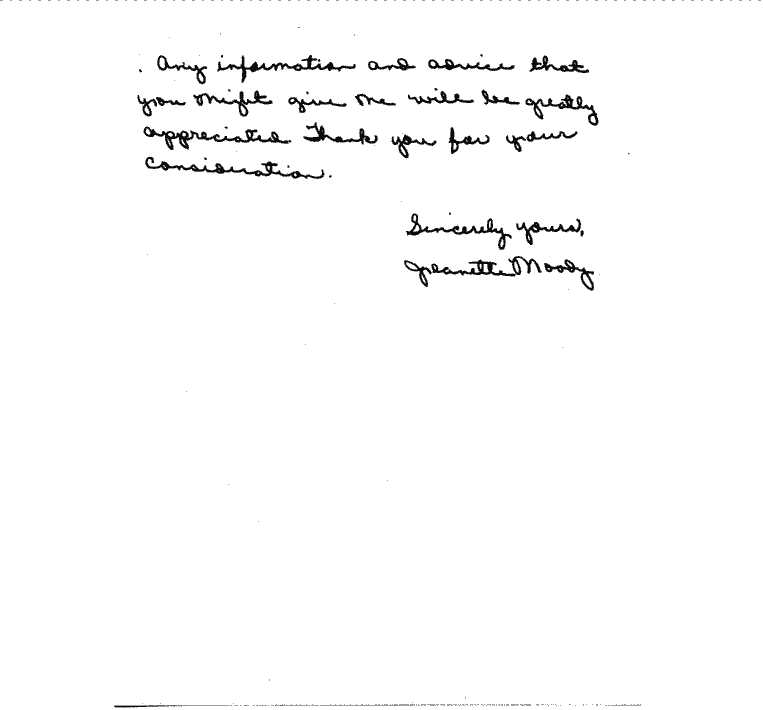 . Any information and advice that
you might give me will be greatly
appreciated. Thank you for your
consideration.
Sincerely yours,
Jeanette Moody